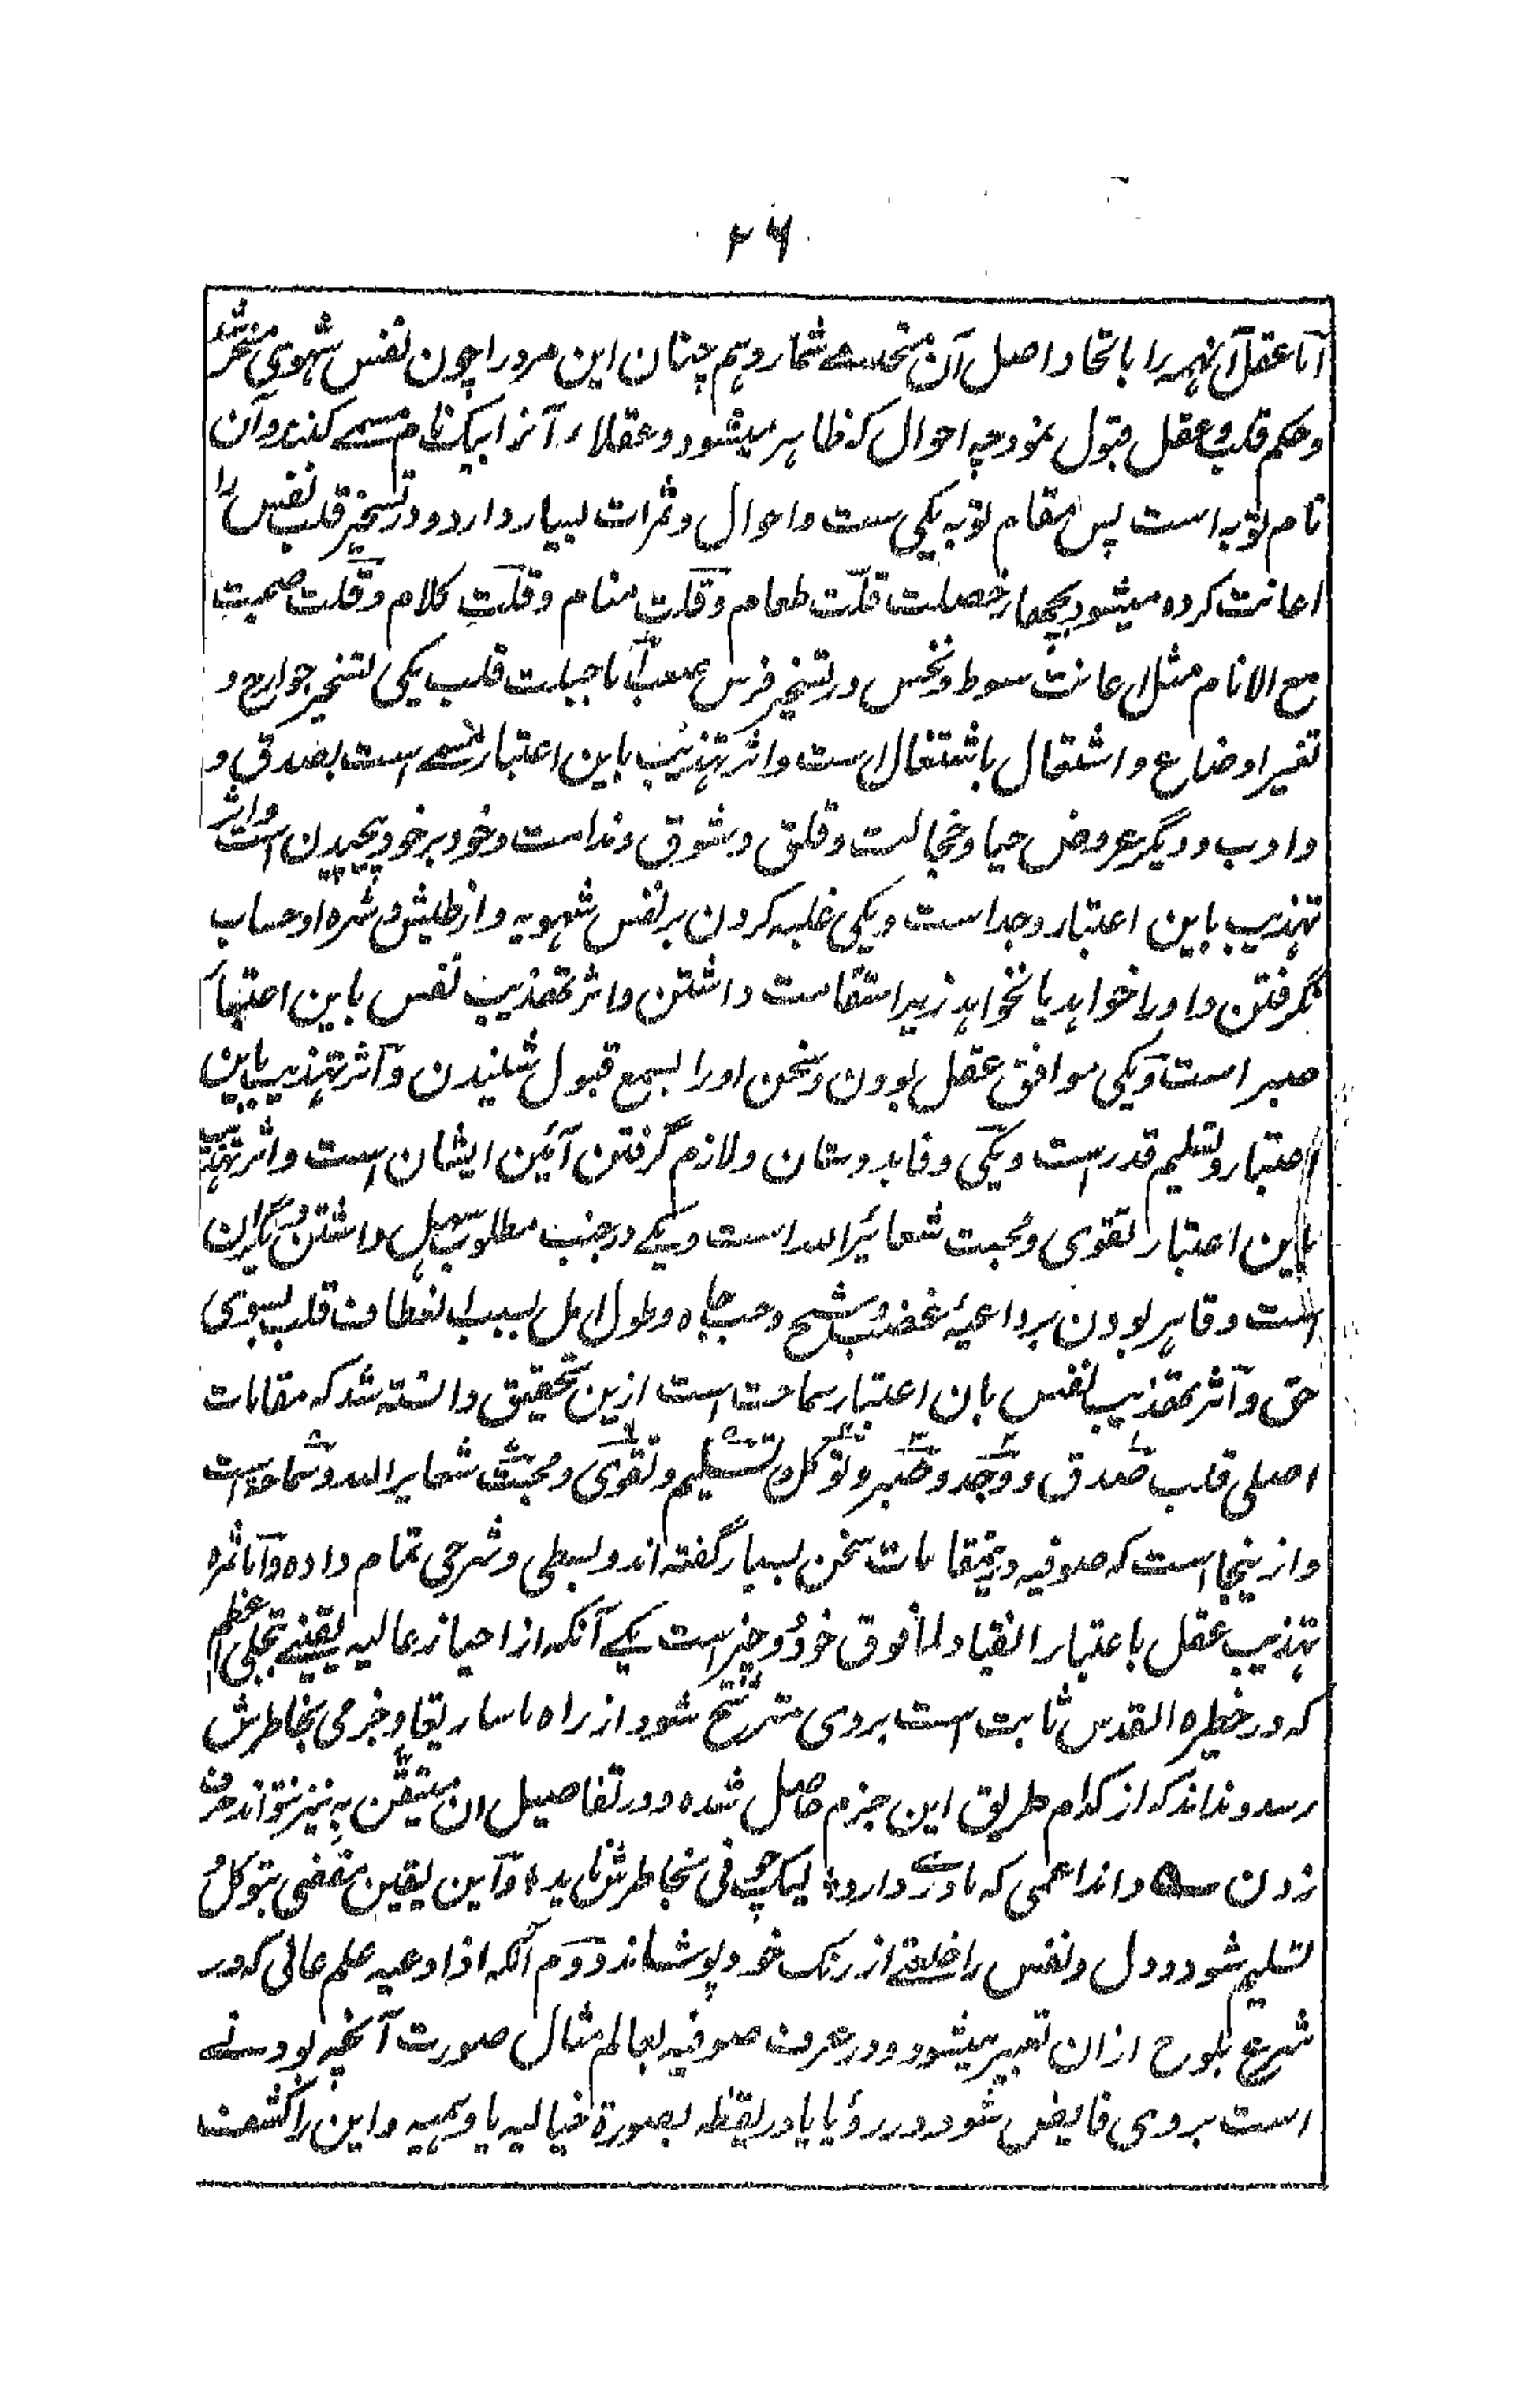 ۲۶
اما عقل آن همه را باتحاد اصل آن متحد می شمارد هم چنان این مرد را چون نفس شهوی مسخر شد
و حکم قلب و عقل قبول نمود چه احوال که ظاهر میشود و عقلاء آنرا بیک نام مسمے کنند و آن
نام توبه است پس مقام توبه یکی ست و احوال و ثمرات بسیار دارد و در تسخیر قلب نفس را
اعانت کرده میشود بچهار خصلت قلّت طعام و قلّت منام و قلّت کلام و قلّت صحبت
مع الانام مثل اعانت سوط و نخس در تسخیر فرس صعب اما جبلت قلب یکی تسخیر جوارح و
تغیر اوضاع و اشتعال باشتغال است و اثر تهذیب باین اعتبار مسمے است بصدق و
و ادب و دیگر عروض حیا و خجالت و قلق و شوق و ندامت و خود بر خود پیچیدن است و اثر
تهذیب باین اعتبار وجد است و یکی غلبه کردن بر نفس شهویه و از طیش و شره او حساب
نگرفتن و او را خواهد یا نخواهد زیر استقامت داشتن و اثر تهذیب نفس باین اعتبار
صبر است و یکی موافق عقل بودن و سخن او را بسمع قبول شنیدن و اثر تهذیب باین
اعتبار و تسلیم قدر است و یکی وفا بدوستان و لازم گرفتن آئین ایشان است و اثر تهذیب
باین اعتبار تقوی و محبت شعائر الله است و یکے در جنب مطلوب سهل داشتن دیگران
است و قاهر بودن بر داعیهٔ غضب و شح و حب جاه و طول امل بسبب انعطاف قلب بسوی
حق و اثر تهذیب نفس بان اعتبار سماحت است ازین تحقیق دانسته شد که مقامات
اصلی قلب صدق و وجد و صبر و توکل و تسلیم و تقوی و محبت شعایر الله و سماحة است
و ازینجا است که صوفیه درین مقامات سخن بسیار گفته اند و بسطی و شرحی تمام داده و اما ثمره
تهذیب عقل باعتبار انقیاد لما فوق خود دو چیز است یکے آنکه از احیاز عالیه یقینے تجلی اعظم
که در خطیره القدس ثابت است بروی مترشح شود از راه ناسار یقا و جزمی بخاطرش
رسد و نداند که از کدام طریق این جزم حاصل شده و در تفاصیل ان متیقن به نیز نتواند حرف
زدن ؎ داند اعمی که مادرے دارد ؛ لیک چونی بخاطرش ناید ؛ و این یقین مفضی بتوکل و
تسلیم شود و دل و نفس را خلعتے از رنگ خود پوشاند دوم آنکه از اوعیه علم عالی که در
شرع بلوح ازان تعبیر میشود و در عرف صوفیه بعالم مثال صورت آنچه بودنے
است بروی فایض شود در رؤیا یا در یقظه بصورة خیالیه یا وهمیه و این را کشف